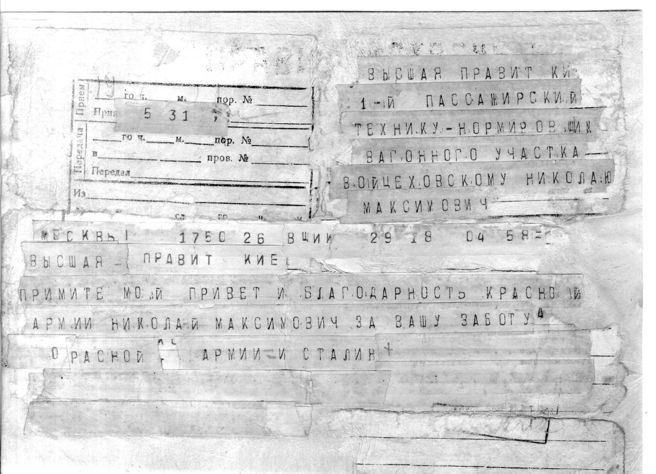 19
го ч. м. пор. №
5 31
го ч. м. пор. №
в пров. №
Передал
Из
Прием
Передача
ВЫСШАЯ ПРАВИТ КИЕ
1-й ПАССАЖИРСКИЙ
ТЕХНИКУ-НОРМИРОВЩИК
ВАГОННОГО УЧАСТКА
ВОЙЦЕХОВСКОМУ НИКОЛАЮ
МАКСИМОВИЧ
МОСКВЫ 1750 26 ВШИИ 29 18 04 58=
ВЫСШАЯ - ПРАВИТ КИЕ
ПРИМИТЕ МОЙ ПРИВЕТ И БЛАГОДАРНОСТЬ КРАСНОЙ
АРМИИ НИКОЛАЙ МАКСИМОВИЧ ЗА ВАШУ ЗАБОТУ
О РАСНОЙ АРМИИ=И СТАЛИН+